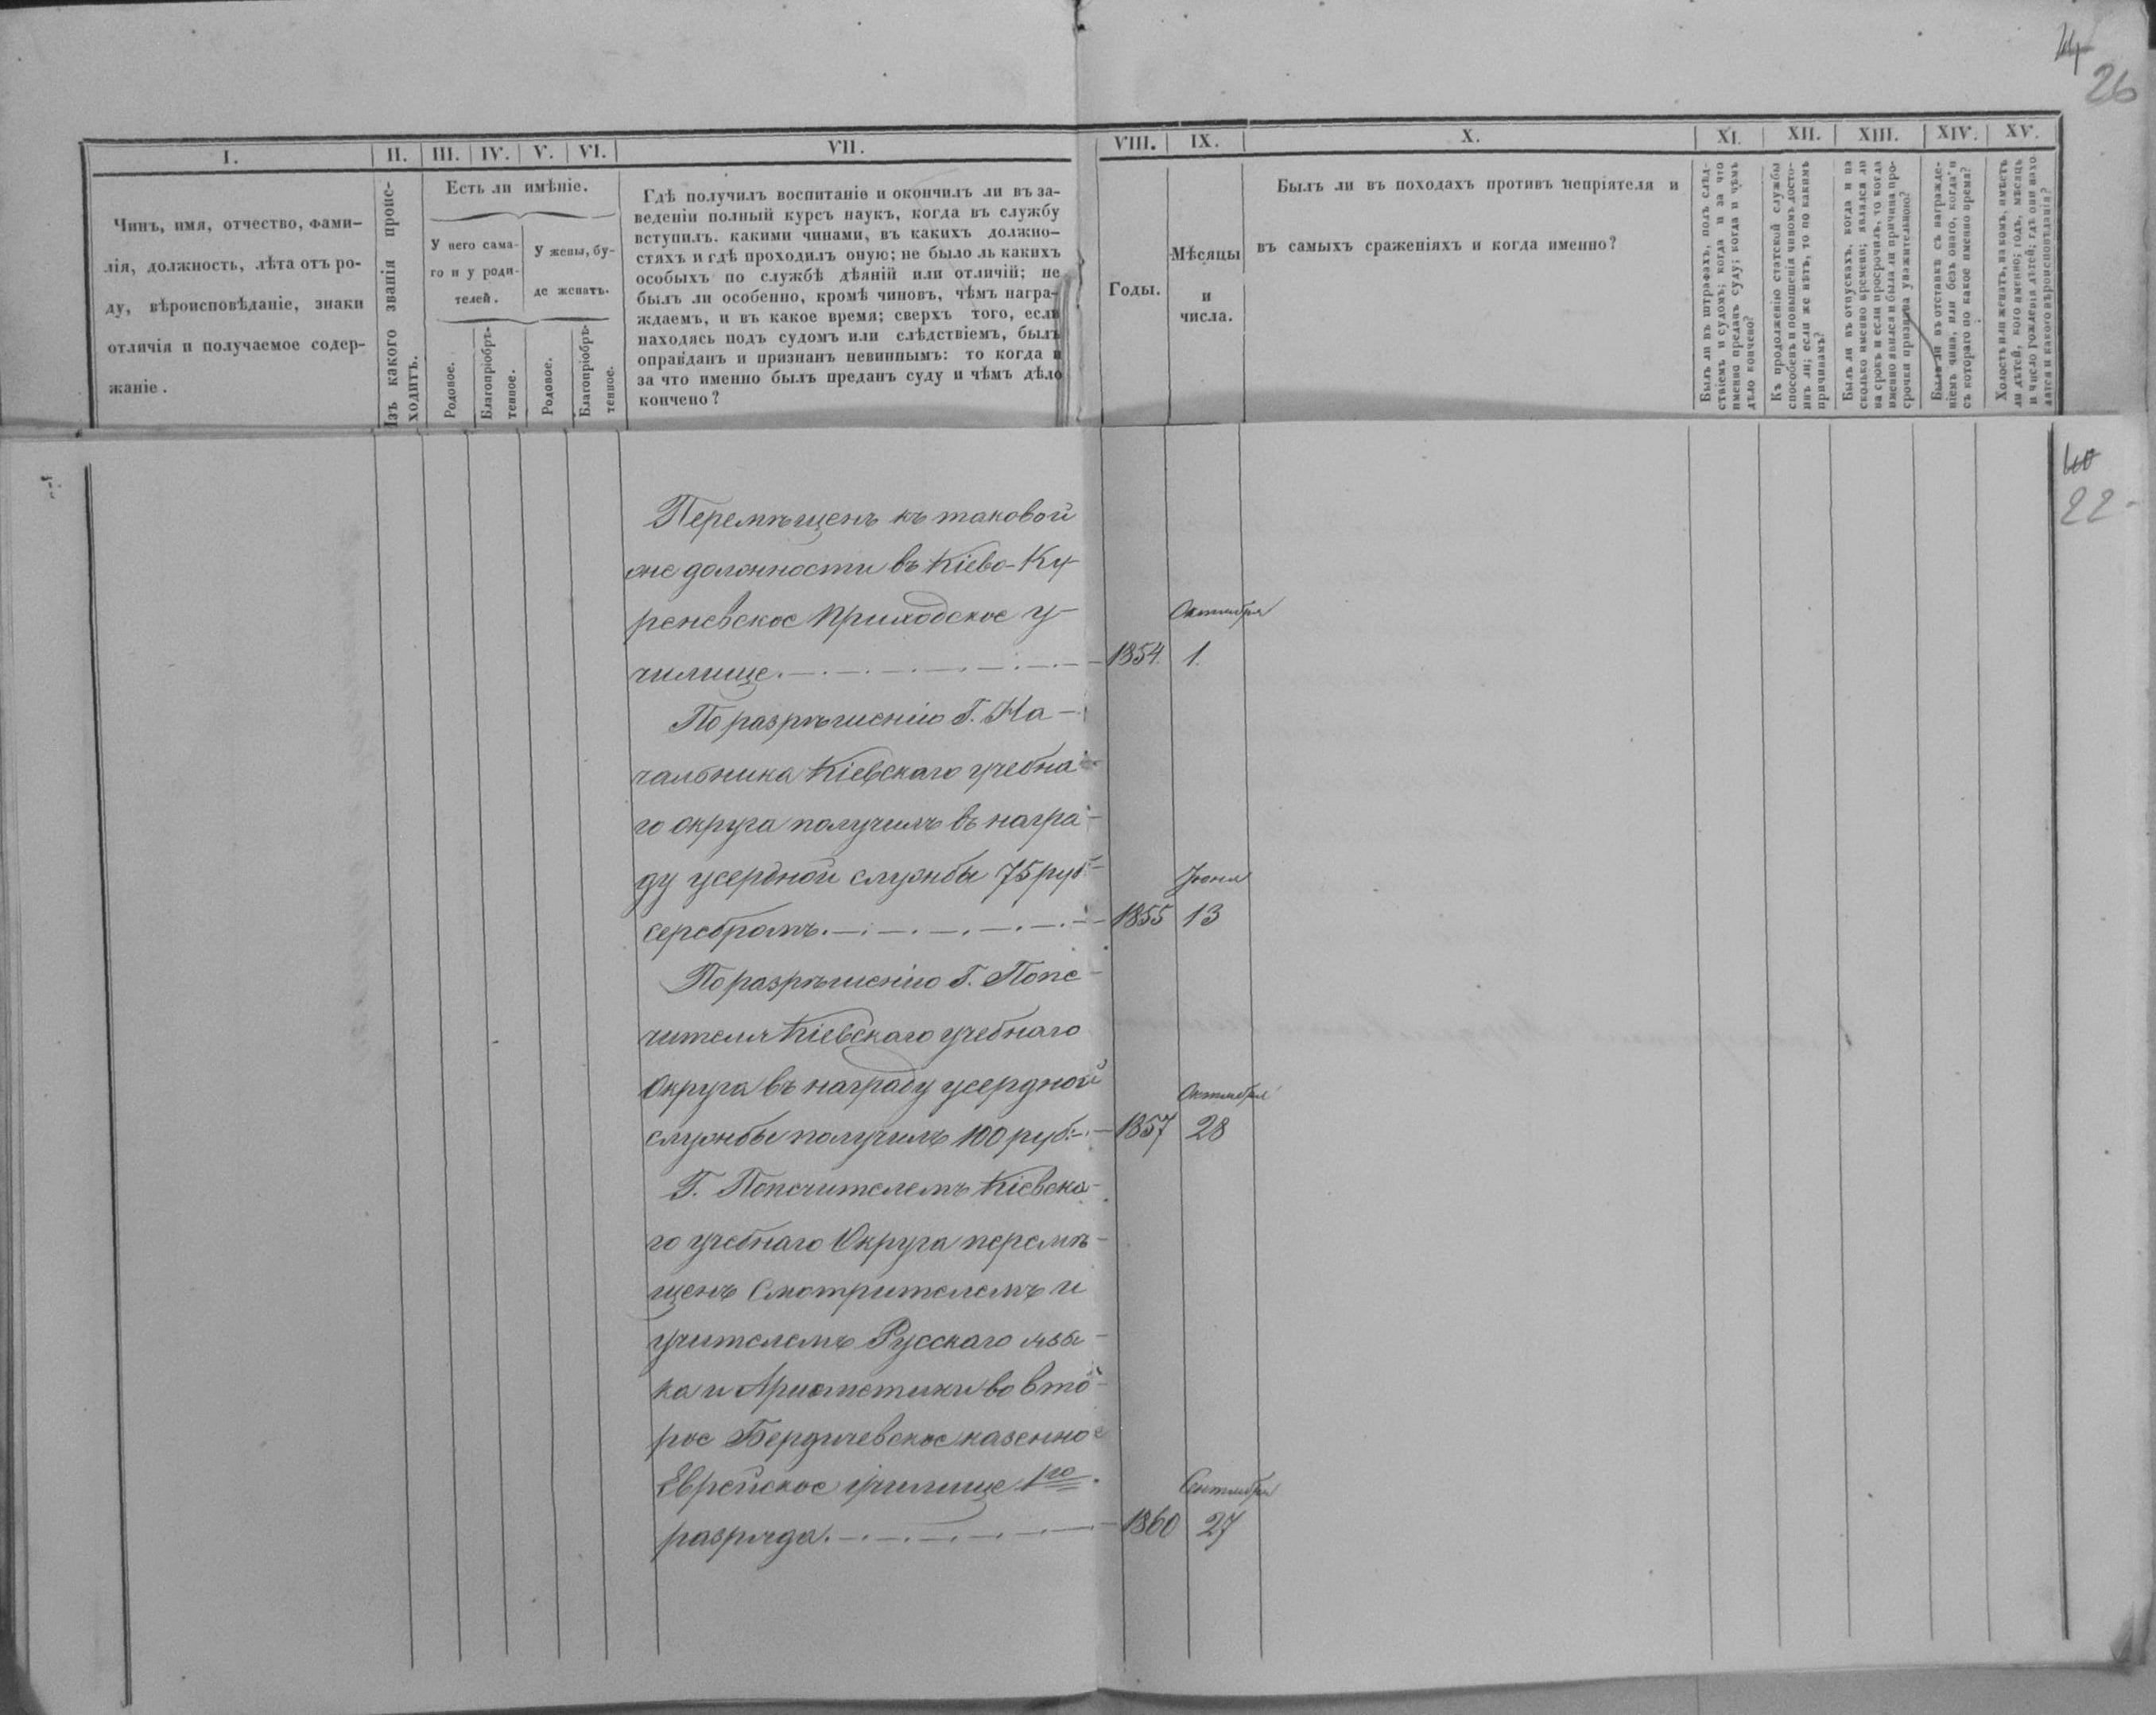 26
I. II. III. IV. V. VI. VII. VIII. IX. X. XI. XII. XIII. XIV. XV.
Чинъ, имя, отчество, фами-
лія, должность, лѣта отъ ро-
ду, вѣроисповѣданіе, знаки
отличія и получаемое содер-
жаніе.
Изъ какого званія проис-
ходитъ.
Есть ли имѣніе.
У него сама-
го и у роди-
телей.
У жены, бу-
де женатъ.
Родовое.
Благопріобрѣ-
тенное.
Родовое.
Благопріобрѣ-
тенное.
Гдѣ получилъ воспитаніе и окончилъ ли въ за-
веденіи полный курсъ наукъ, когда въ службу
вступилъ. какими чинами, въ какихъ должно-
стяхъ и гдѣ проходилъ оную; не было ль какихъ
особыхъ по службѣ дѣяній или отличій; не
былъ ли особенно, кромѣ чиновъ, чѣмъ награ-
ждаемъ, и въ какое время; сверхъ того, если
находясь подъ судомъ или слѣдствіемъ, былъ
оправданъ и признанъ невиннымъ: то когда и
за что именно былъ преданъ суду и чѣмъ дѣло
кончено?
Годы.
Мѣсяцы
и
числа.
Былъ ли въ походахъ противъ непріятеля и
въ самыхъ сраженіяхъ и когда именно?
Былъ ли въ штрафахъ, подъ слѣд-
ствіемъ и судомъ; когда и за что
именно преданъ суду; когда и чѣмъ
дѣло кончено?
Къ продолженію статской службы
способенъ и повышенія чиномъ досто-
инъ ли; если же нѣтъ, то по какимъ
причинамъ?
Былъ ли въ отпускахъ, когда и на
сколько именно времени; являлся ли
на срокъ и если просрочилъ, то когда
именно явился и была ли причина про-
срочки признана уважительною?
Былъ ли въ отставкѣ съ награжде-
ніемъ чина, или безъ онаго, когда и
съ котораго по какое именно время?
Холостъ или женатъ, на комъ, имѣетъ
ли дѣтей, кого именно; годъ, мѣсяцъ
и число рожденія дѣтей; гдѣ они нахо-
дятся и какого вѣроисповѣданія?
22
Перемѣщенъ къ таковой
же должности въ Кіево-Ку-
реневское Приходское у-
Октября
чилище. 1854. 1.
По разрѣшенію Г. На-
чальника Кіевскаго учебна-
го округа получилъ въ награ-
ду усердной службы 75 руб.
Іюня
серебромъ. 1855 13
По разрѣшенію Г. Попе-
чителя Кіевскаго учебнаго
Округа въ награду усердной
Октября
службы получилъ 100 руб. 1857 28
Г. Попечителемъ Кіевска-
го учебнаго Округа перемѣ-
щенъ Смотрителемъ и
учителемъ Русскаго язы-
ка и Ариѳметики во вто-
рое Бердичевское казенное
Еврейское училище 1го
Сентября
разряда. 1860 27